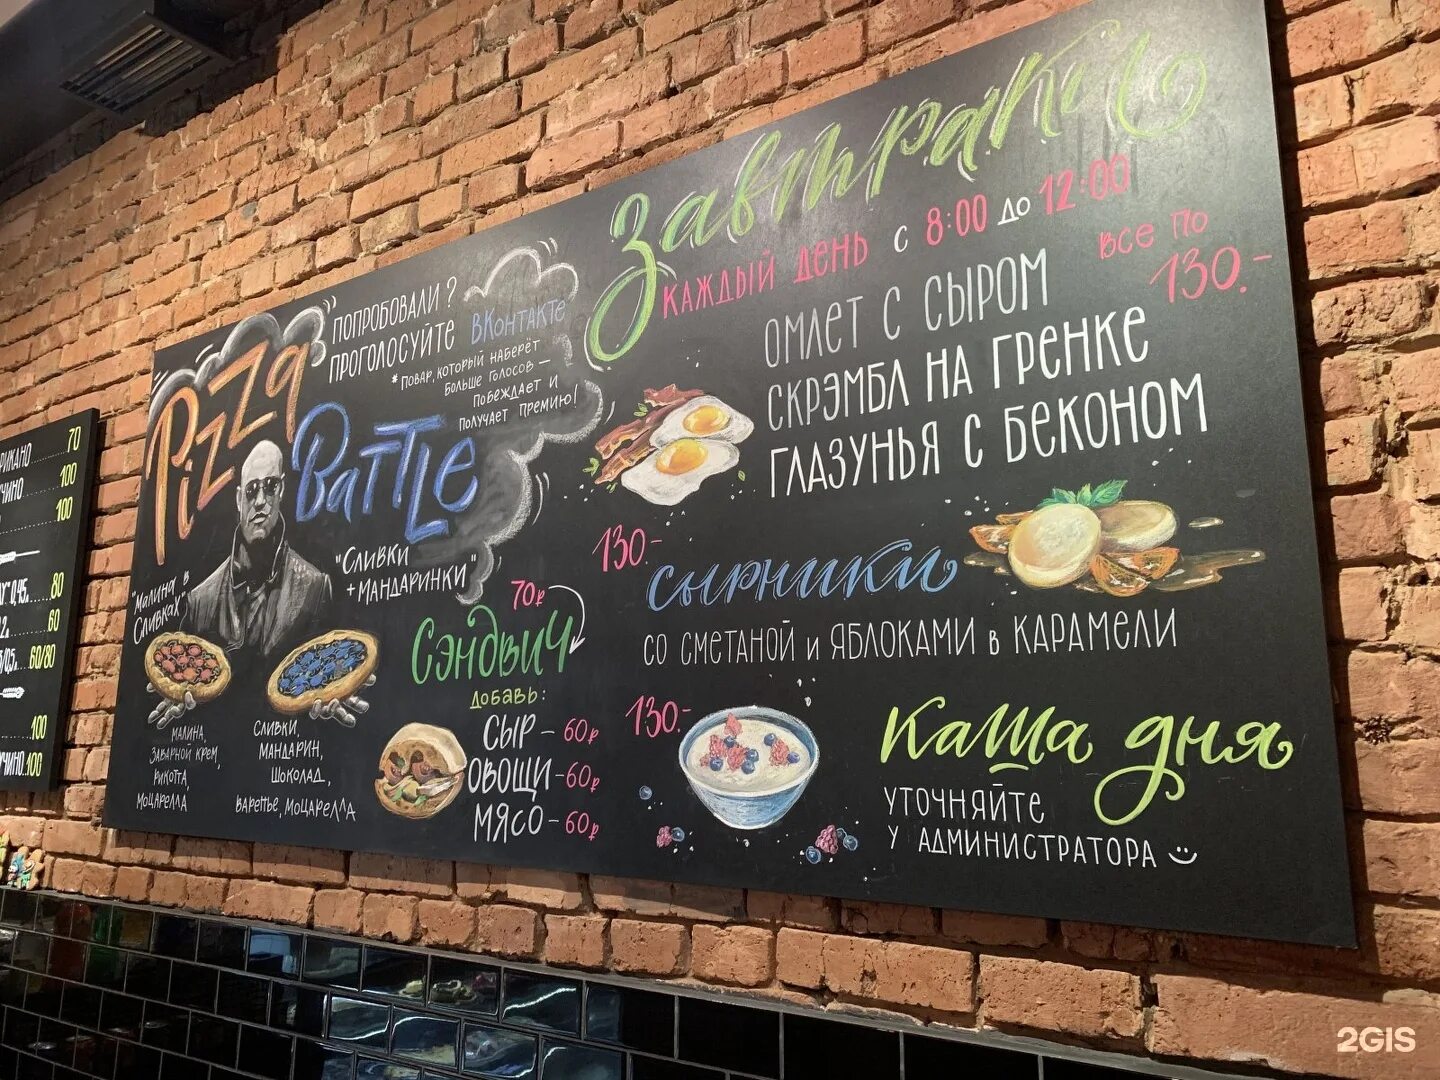 70
100
100
80
60
60/80
100
100
Pizza
Battle
ПОПРОБОВАЛИ?
ПРОГОЛОСУЙТЕ ВКонтакте
*Повар, который наберёт
больше голосов —
побеждает и
получает премию!
"Малина в
Сливках"
"Сливки
+ мандаринки"
малина,
заварной крем,
рикотта,
моцарелла
сливки,
мандарин,
шоколад,
варенье, моцарелла
70₽
Сэндвич
добавь:
СЫР – 60₽
ОВОЩИ – 60₽
МЯСО – 60₽
Завтраки
КАЖДЫЙ ДЕНЬ с 8:00 до 12:00
все по
130.-
ОМЛЕТ С СЫРОМ
СКРЭМБЛ НА ГРЕНКЕ
ГЛАЗУНЬЯ С БЕКОНОМ
130.-
Сырники
СО СМЕТАНОЙ И ЯБЛОКАМИ В КАРАМЕЛИ
130.-
Каша дня
УТОЧНЯЙТЕ
У АДМИНИСТРАТОРА
2GIS